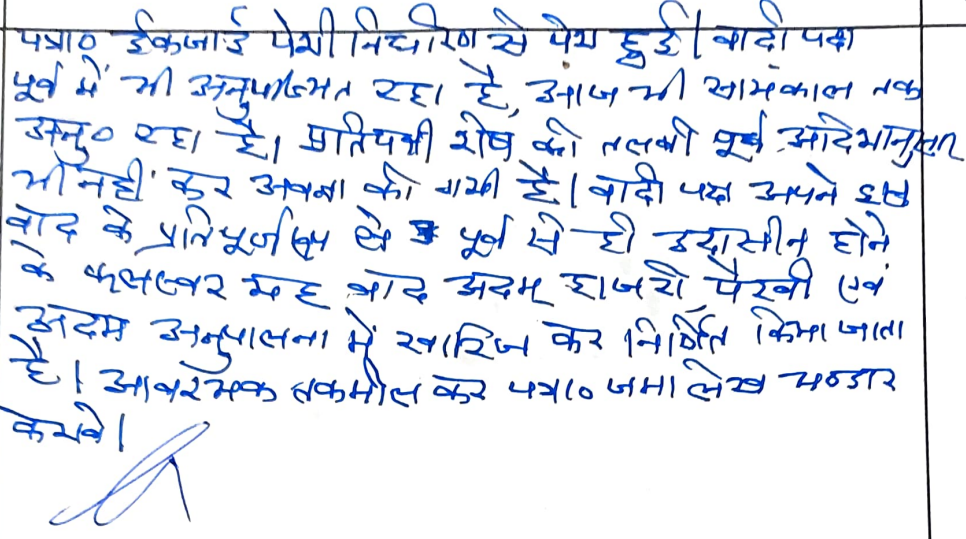 पत्रा० ईकजाई पेशी निर्धारण से पेश हुई। वादी पक्ष
पूर्व में भी अनुपस्थित रहा है, आज भी सायंकाल तक
अनु० रहा है। प्रतिपक्षी शेष की तलबी पूर्व आदेशानुसार
भी नहीं कर अवज्ञा की गयी है। वादी पक्ष अपने इस
वाद के प्रति पूर्ण रूप से पूर्व से ही उदासीन होने
के फलस्वर यह वाद अदम हाजरी पैरवी एवं
अदम अनुपालना में खारिज कर निर्णित किया जाता
है। आवश्यक तकमील कर पत्रा० जमा लेख भण्डार
करावे।